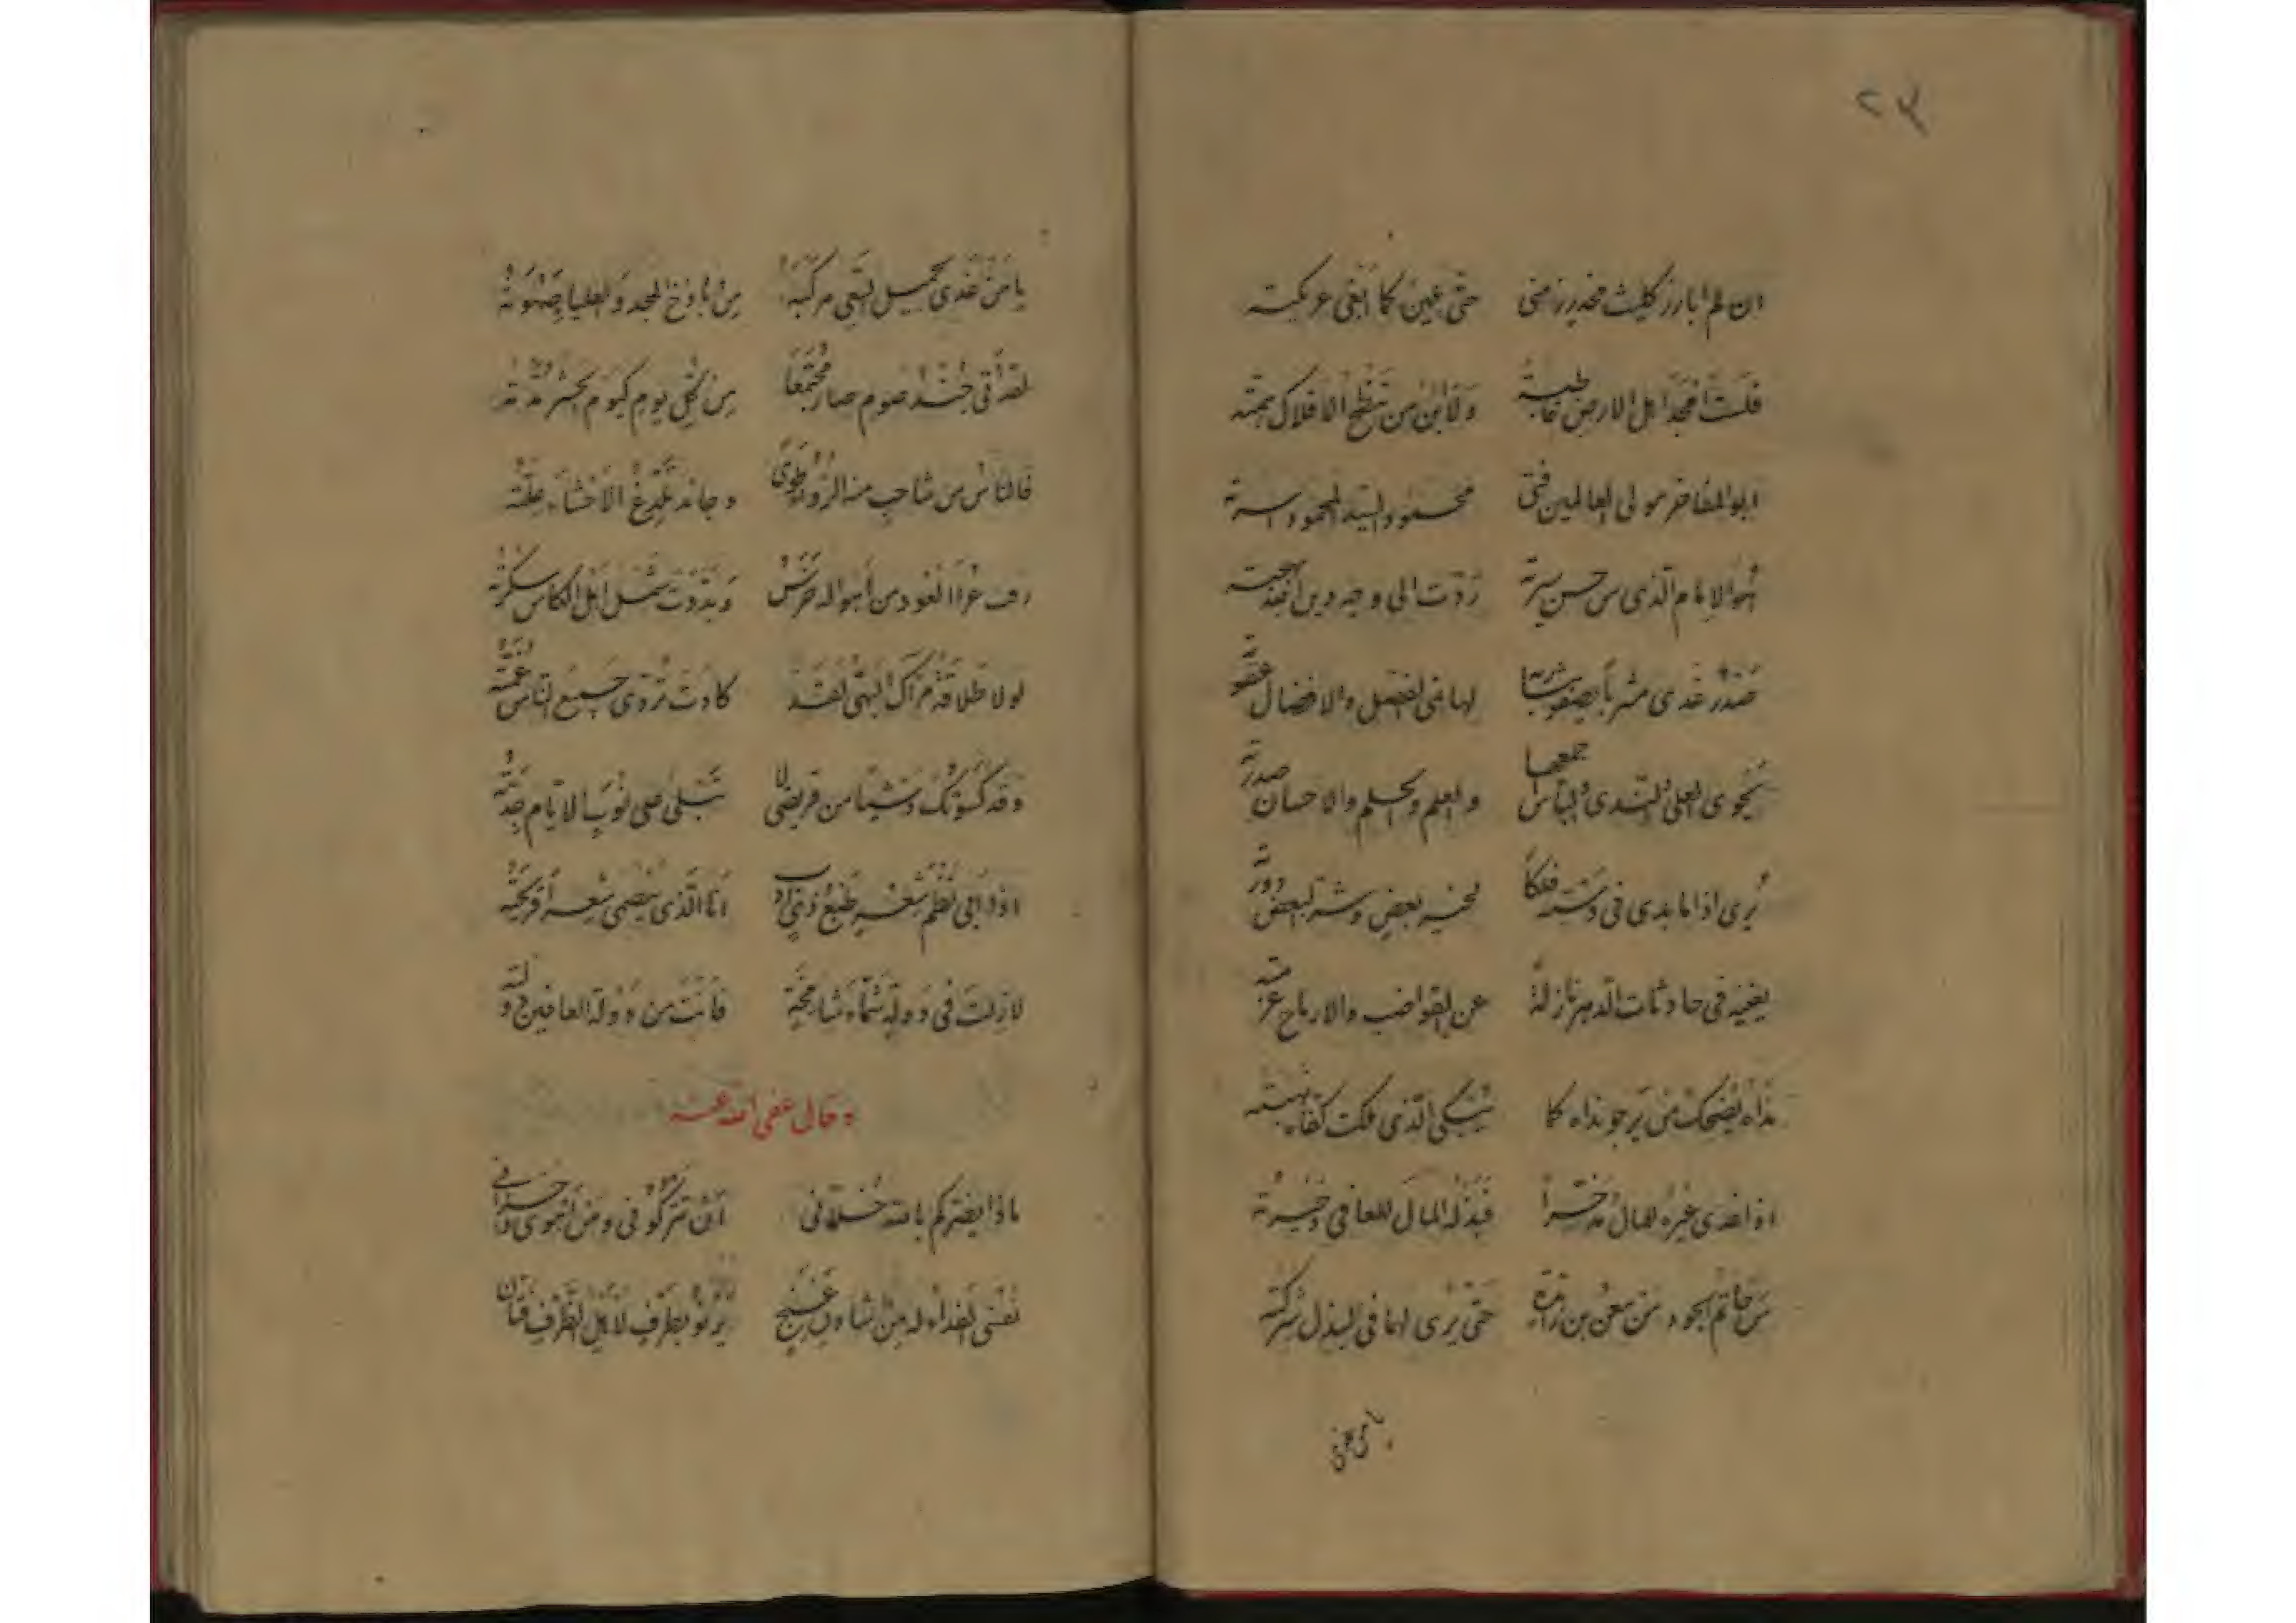 ٢٣
ان لم ابارز كليث مخدر زمنى حتى يلين كما ابغى عريكته
فلست امجد اهل الارض قاطبة ولا ابن من تنطح الافلاك همته
ابو المفاخر مولى العالمين فتى محمود السيد المحمود
هو الامام الذى من حسن سيرته ردت الى وجه دين الله بهجته
صدر غدى مشربا يصفو لشاربه لها فى الفضل والافضال
يحوى العلى والندى والبأس جمعها والعلم والحلم والاحسان صدرته
يرى اذا ما بدى فى دسته فلكا لخير بعض وشر البعض دورته
يغنيه فى حادثات الدهر نازلة عن القواضب والارماح عزمته
نداه يضحك من يرجو نداه كما تبكى الذى ملكت كفاه
اذا غدى غيره للمال مدخرا فبذله المال للعافى ذخيرته
من حاتم الجود من معن بن زائدة حتى يرى لهما فى البذل شركته
يا من غدى
يا من غدى لجميل النهى مركبه من باذخ المجد والعليا صهوته
لقد اتى جند صوم صار مجتمعا من كل يوم كيوم الحشر مدته
فالناس من شاحب منه الرواء طوى وجائد يلدغ الاحشاء علته
عرا العود من اهواله خرس وبددت شمل اهل الكاس سكرته
لولا طلاقة مرآك البهى لقد كادت تردى جميع الناس غمته
وقد كسوتك وشيا من قريضى لا تبلى على نوب الايام جدته
اذا ابى نظم شعر طبع ذى ادب انا الذى يصمى شعرا قريحته
لازلت فى دولة شماء شامخة فانت من دولة العافين دولته
وقال عفى الله عنه
ماذا يضركم بالله خلانى ان تتركونى ومن اهوى واحزانى
نفسى الفداء له من شادن غنج يرنو بطرف لاهل الظرف فتان